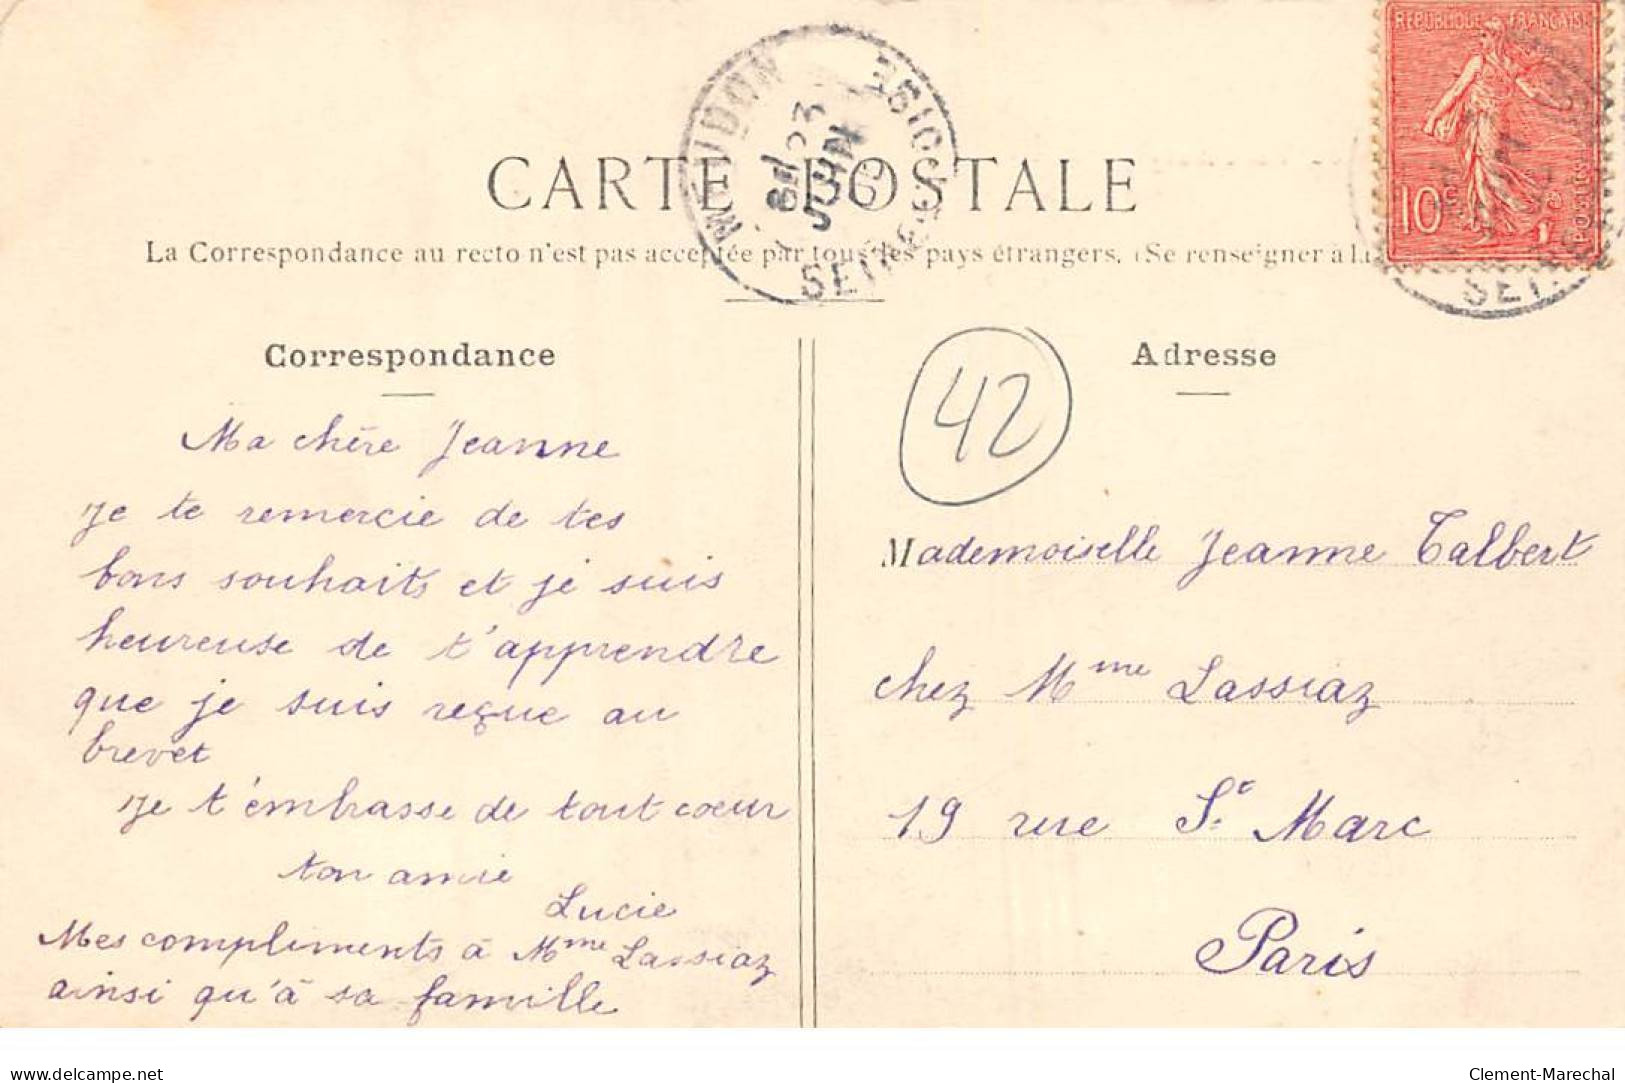 REPUBLIQUE FRANÇAISE
10c
POSTES
MEUDON
SEINE
23
JUIN
CARTE POSTALE
La Correspondance au recto n'est pas acceptée par tous les pays étrangers. (Se renseigner à la
Correspondance
Ma chère Jeanne
Je te remercie de tes
bons souhaits et je suis
heureuse de t'apprendre
que je suis reçue au
brevet
Je t'embrasse de tout cœur
ton amie
Lucie
Mes compliments à Mme Lassiaz
ainsi qu'à sa famille
Adresse
42
Mademoiselle Jeanne Talbert
chez Mme Lassiaz
19 rue St Marc
Paris
www.delcampe.net
Clement-Marechal